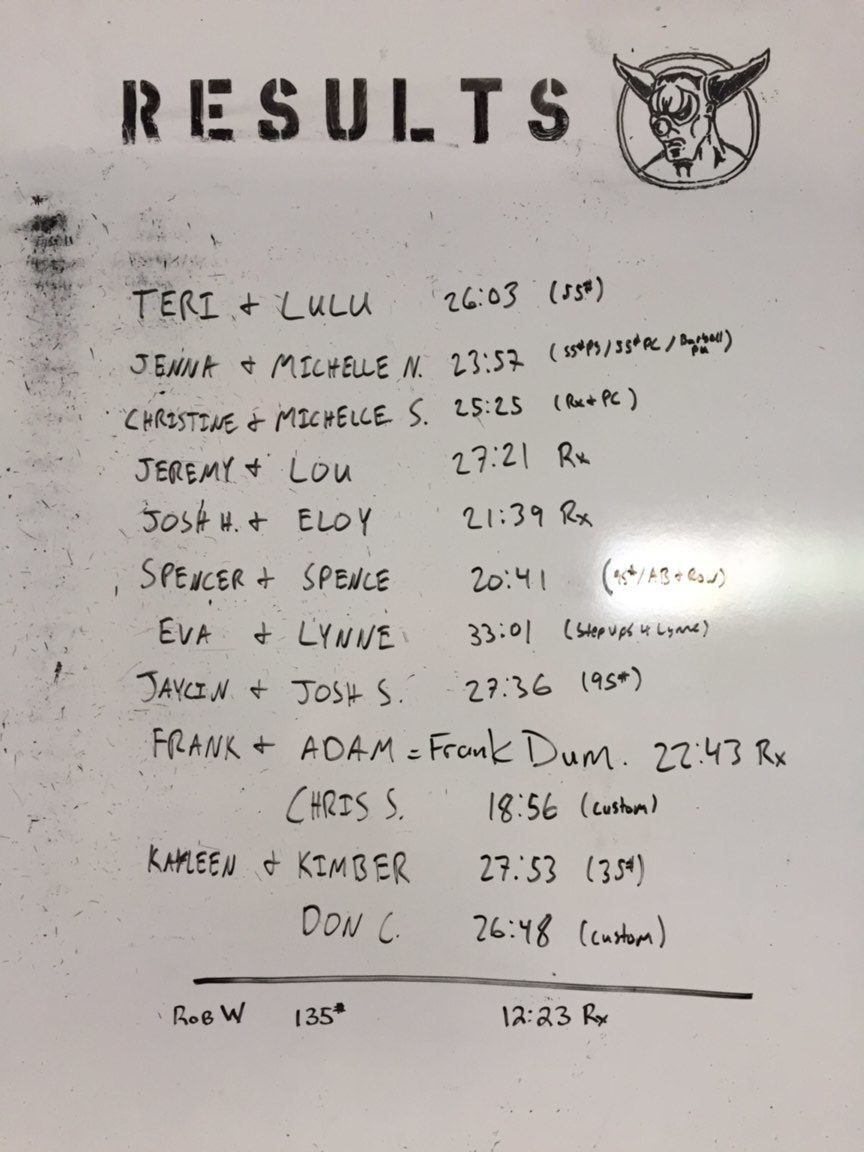 RESULTS
TERI + LULU 26:03 (55#)
JENNA + MICHELLE N. 23:57 (55#PS/55#PC/Barbell
CHRISTINE + MICHELLE S. 25:25 (Rx+PC)
JEREMY + LOU 27:21 Rx
JOSH H. + ELOY 21:39 Rx
SPENCER + SPENCE 20:41 (95#/AB+Row)
EVA + LYNNE 33:01 (Step ups 4 Lynne)
JAYCIN + JOSH S. 27:36 (95#)
FRANK + ADAM = Frank Dum. 22:43 Rx
CHRIS S. 18:56 (custom)
KAYLEEN + KIMBER 27:53 (35#)
DON C. 26:48 (custom)
ROB W 135# 12:23 Rx